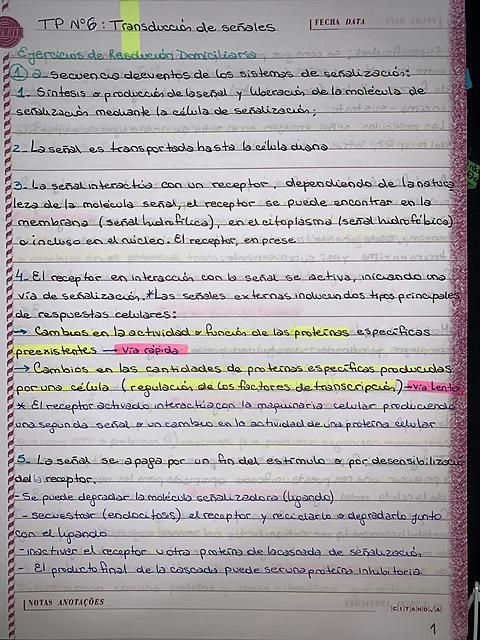 TP Nº6: Transducción de señales
FECHA DATA
Ejercicios de Resolución Domiciliaria
1) a- secuencia de eventos de los sistemas de señalización:
1. Síntesis o producción de la señal y liberación de la molécula de
señalización mediante la célula de señalización;
2. La señal es transportada hasta la célula diana
3. La señal interactúa con un receptor, dependiendo de la natura
leza de la molécula señal, el receptor se puede encontrar en la
membrana (señal hidrofílica), en el citoplasma (señal hidrofóbica)
o incluso en el núcleo. El receptor, en prese
4. El receptor en interacción con la señal se activa, iniciando una
vía de señalización. *Las señales externas inducen dos tipos principales
de respuestas celulares:
→ Cambios en la actividad o función de las proteínas específicas
preexistentes → vía rápida
→ Cambios en las cantidades de proteínas específicas producidas
por una célula (regulación de los factores de transcripción) → vía lenta
* El receptor activado interactúa con la maquinaria celular produciendo
una segunda señal o un cambio en la actividad de una proteína celular
5. La señal se apaga por un fin del estímulo o por desensibilizació
del receptor.
- Se puede degradar la molécula señalizadora (ligando)
- secuestrar (endocitosis) el receptor y reciclarlo o degradarlo junto
con el ligando
- inactivar el receptor u otra proteína de la cascada de señalización
- El producto final de la cascada puede ser una proteína inhibitoria.
NOTAS ANOTAÇÕES
CITANOVA
1